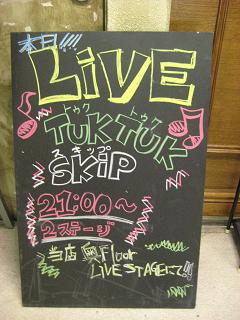 本日!!!!
LiVE
トゥク トゥク
TUK TUK
スキップ
SKiP
21:00～
2ステージ
当店 奥Floor
LIVE STAGEにて!!